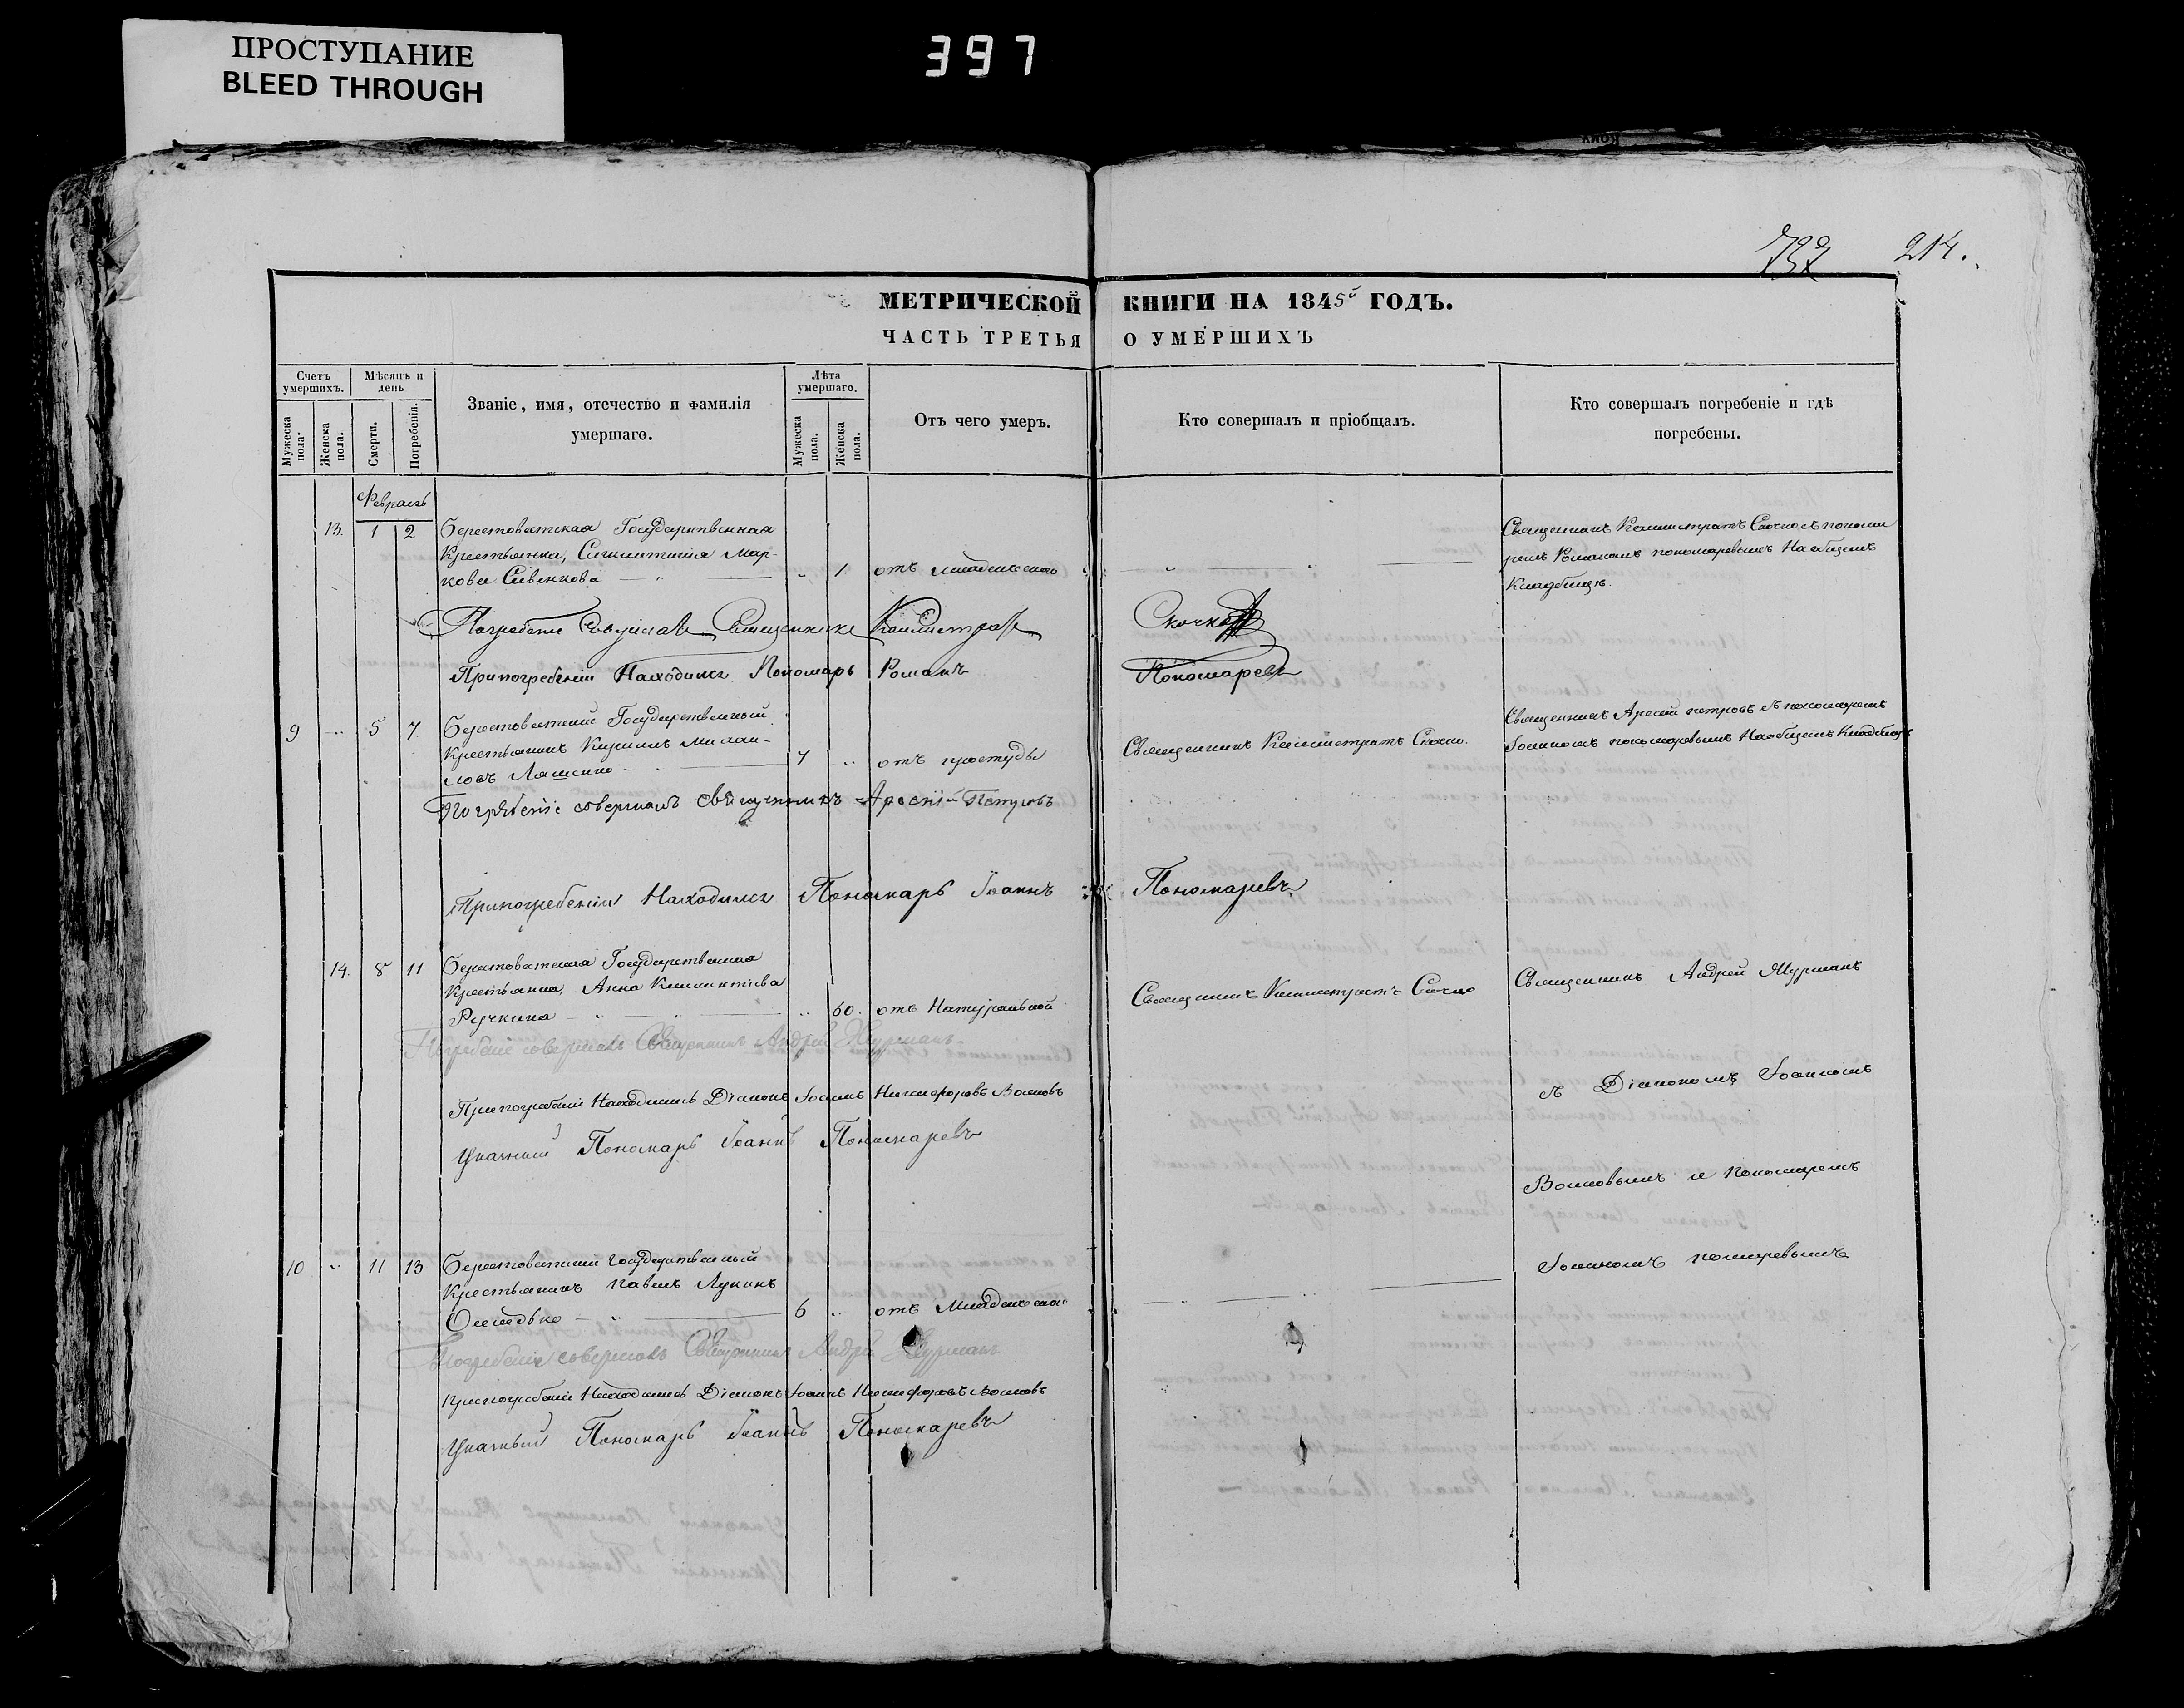 ПРОСТУПАНИЕ
BLEED THROUGH
397
214.
МЕТРИЧЕСКОЙ КНИГИ НА 1845й ГОДЪ.
ЧАСТЬ ТРЕТЬЯ О УМЕРШИХЪ
Счетъ умершихъ.
Мужеска пола.
Женска пола.
Мѣсяцъ и день
Смерти.
Погребенія.
Званіе, имя, отечество и фамилія
умершаго.
Лѣта умершаго.
Мужеска пола.
Женска пола.
Отъ чего умеръ.
Кто совершалъ и пріобщалъ.
Кто совершалъ погребеніе и гдѣ
погребены.
Февраль
13. 1 2 Берестоватская Государственная
Крестьянка, Мар-
кова Сивенкова 1. отъ младенческаго
Священникъ Каллистратъ Скочко съ понома
ремъ Романомъ пономаревымъ На общемъ
Кладбищѣ.
Погребеніе Совершалъ Священникъ Каллистратъ Скочко
Припогребеніи Находился Пономарь Романъ Пономаревъ
9 5 7 Берестоватскій Государственный
Крестьянинъ Кириллъ Михай-
ловъ Ляшенко 7 отъ простуды
Священникъ Каллистратъ Скочко.
Священникъ Арсеній петровъ съ пономаремъ
Іоанномъ пономаревымъ На общемъ Кладбищѣ
Погребеніе совершалъ священникъ Арсеній Петровъ
Припогребеніи Находился Пономарь Іоаннъ Пономаревъ
14. 8 11 Берестоватская Государственная
Крестьянка, Анна Климентіева
Ручкина 60. отъ Натуральной
Священникъ Каллистратъ Скочко
Священникъ Андрей Журманъ
Погребеніе совершалъ Священникъ Андрей Журманъ
съ Діакономъ Іоанномъ
Припогребеніи Находились Діаконъ Іоаннъ Никифоровъ Волковъ
Указный Пономарь Іоаннъ Пономаревъ
Волковымъ и Пономаремъ
Іоанномъ пономаревымъ
10 11 13 Берестоватскій Государственный
Крестьянинъ павелъ Лукинъ
6 отъ Младенческой
Погребеніе совершалъ Священникъ Андрей Журманъ
припогребеніи Находились Діаконъ Іоаннъ Никифоровъ Волковъ
Указный Пономарь Іоаннъ Пономаревъ